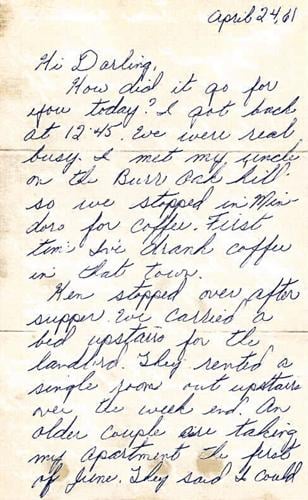 April 24, 61
Hi Darling,
How did it go for
you today? I got back
at 12:45. We were real
busy. I met my uncle
on the Burr Oak hill
so we stopped in Min-
doro for coffee. First
time I've drank coffee
in that town.
Ken stopped over after
supper. We carried a
bed upstairs for the
landlord. They rented a
single room out upstairs
over the week end. An
older couple are taking
my apartment the first
of June. They said I could